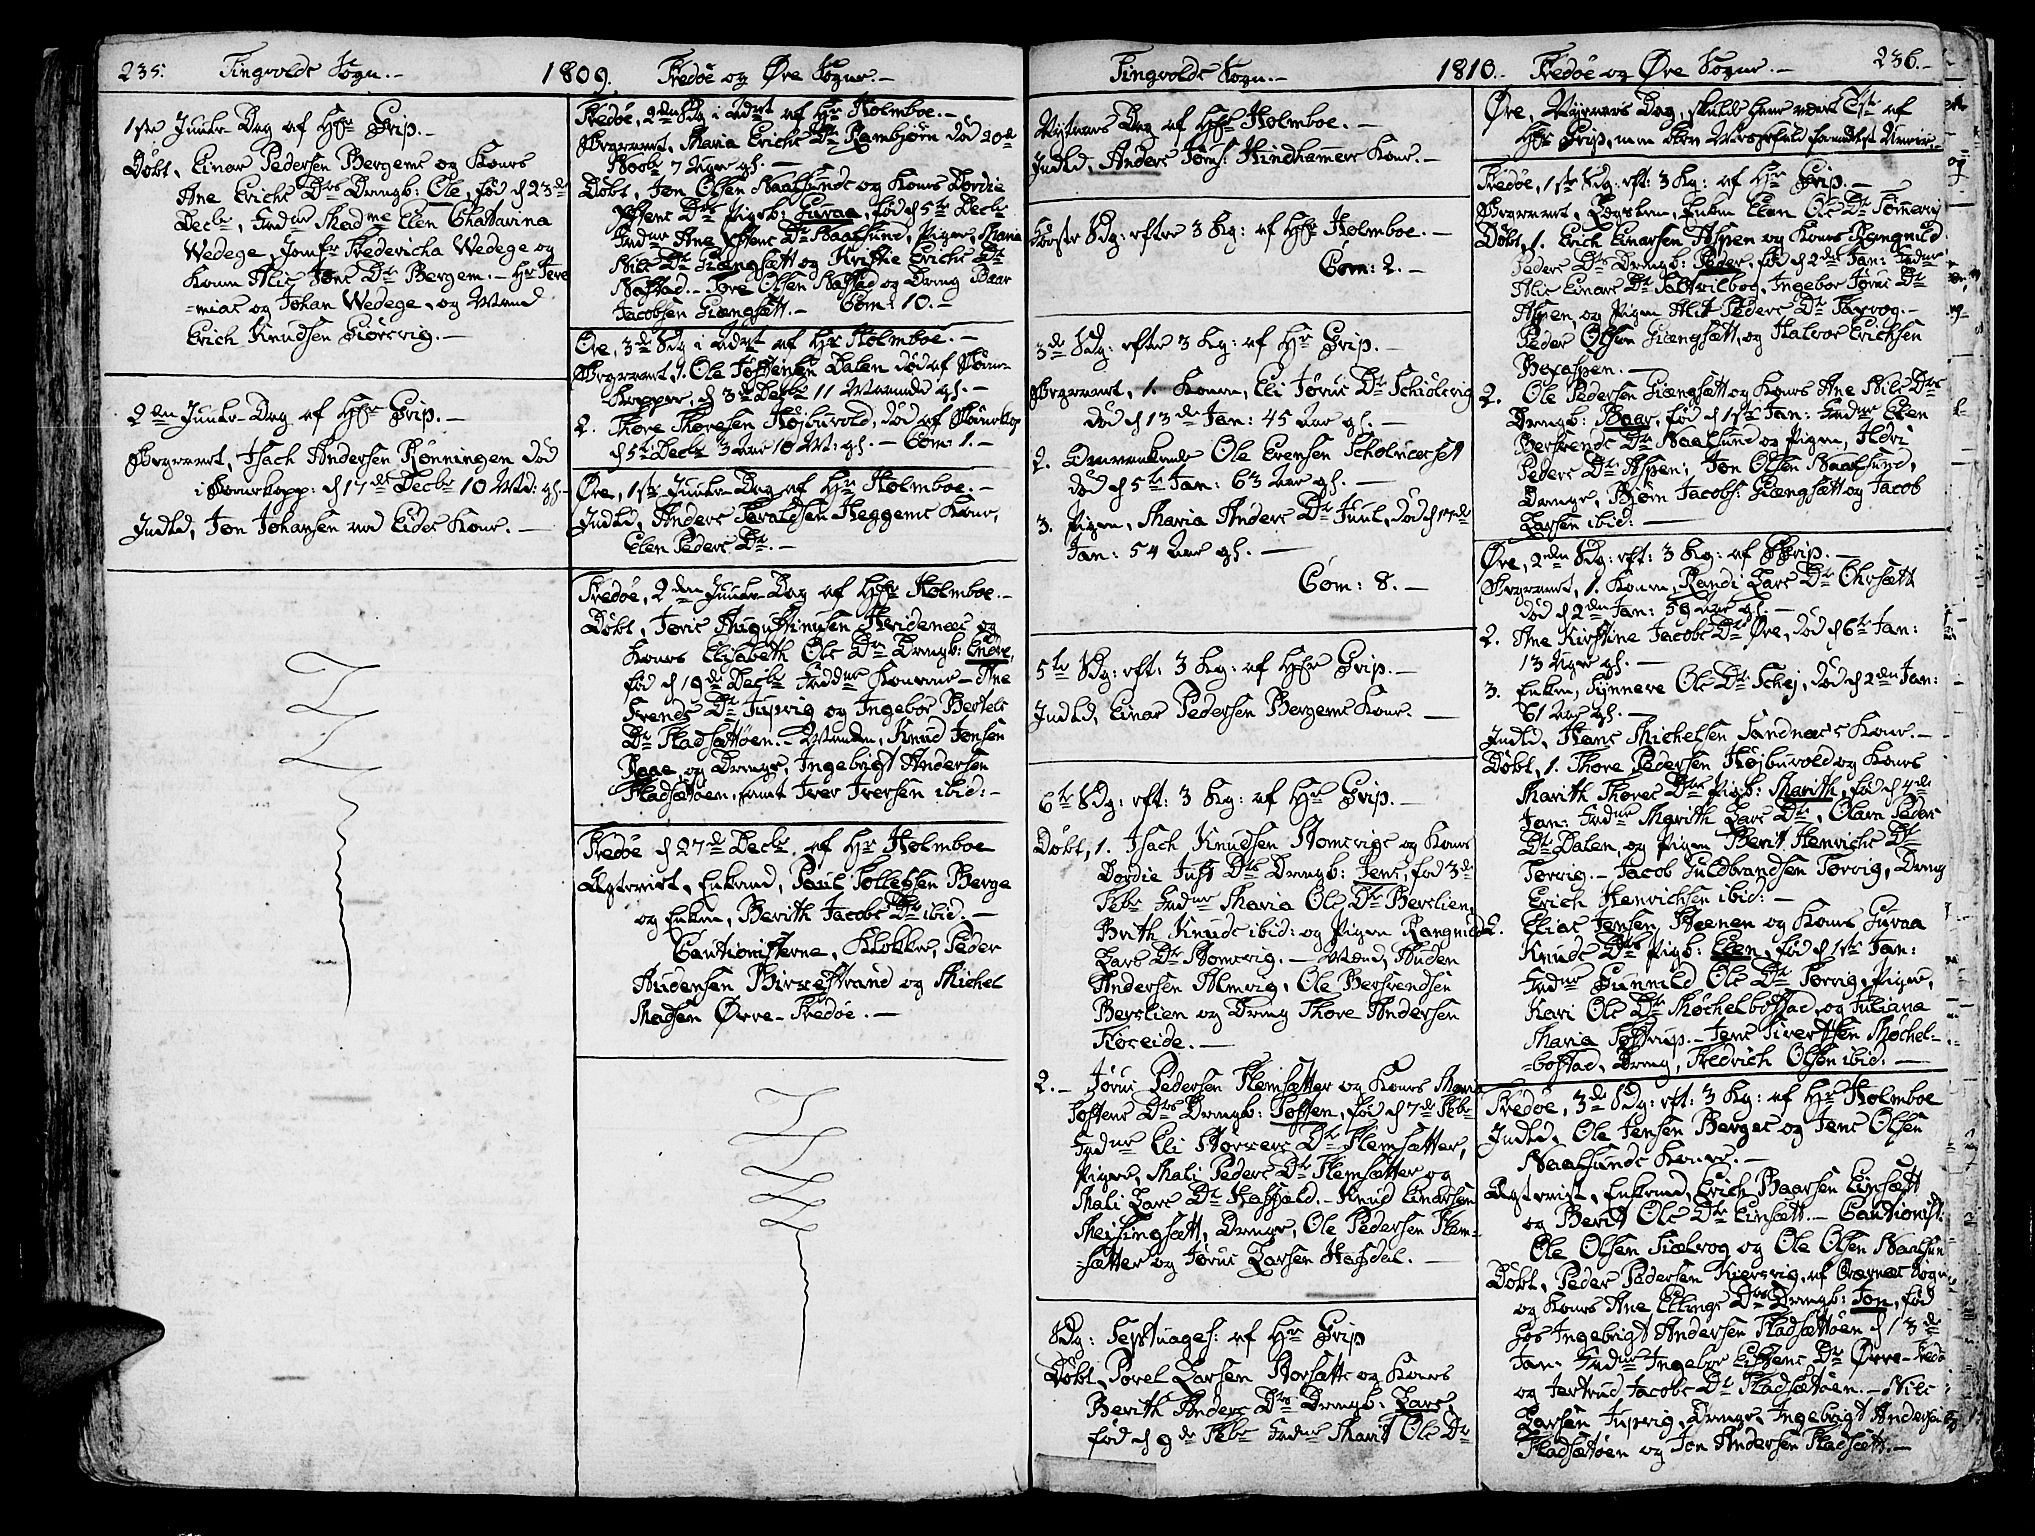 235.
Tingvolds Sogn.-
1809.
Fredöe og Øre Sogne.-
1ste Juule-Dag af Hr Grip.-
Döbt, Einar Pedersen Bergems og Kones
Ane Erichs Dtrs Drengb: Ole, föd d 23de
Decbr, Faddr Madme Elen Chattarina
Wedege, Jomfr Fredericha Wedege og
Konen Alis Jons Dtr Bergem.- Hr Jere
=mias og Johan Wedege, og Mand
Erich Knudsen Giörsvig.-
2den Juule-Dag af Hr Grip.-
Begravet, Isach Andersen Rönningen död
i Börnekopp: d 17de Decbr 10 Md: gl.-
Indld, Jon Johansen ned Eides Kone.-
Fredöe, 2den Sdg i Advt af Hr Holmboe.-
Begravet, Maria Erichs Dtr Rambjörn död 20de
Novbr 7 Uger gl.-
Döbt, Jon Olsen Naalsunds og Kones Dordie
Dtrs Pigeb: Guraa, föd d 5te Decbr
Faddr Ane Dtr Naalsund, Piger, Maria
Nils Dtr Giængsætt og Kristie Erichs Dtr
Nastad.- Tore Olsen Nastad og Dreng Baar
Jacobsen Giængsætt.- Com: 10.-
Øre, 3de Sdg i Advt af Hr Holmboe.-
Begravet, 1. Ole Tostensen Dalen död af Börne-
kopper, d 3de Decbr 11 Maaneder gl.-
2. Thore Thoresen Höjbuvold, död af Börnekop
d 5te Decbr 3 Aar 10 M: gl.- Com: 1.-
Øre, 1ste Juule-Dag af Hr Holmboe.-
Indld, Anders Haraldsen Heggems Kone,
Elen Peders Dtr.-
Fredöe, 2den Juule-Dag af Hr Holmboe.-
Döbt, Joris Augustinusen Nerdenes og
Kones Elisabeth Ols Dtrs Drengb: Endre,
föd d 19de Decbr Faddr Konerne- Ane
Svends Dtr Jupvig og Ingebor Bertels
Dtr Fladsættöen.- Manden, Knud Jonsen
Raae, og Drenge, Ingebrigt Andersen
Fladsættöen, samt Iver Iversen ibid:-
Fredöe d 27de Decbr af Hr Holmboe
Ægteviet, Enkmd, Paul Tollefsen Berge
og Enken, Berith Jacobs Dtr ibid.-
Cautionisterne, Klokker, Peder
Audensen Birkestrand og Michel
Madsen Övre-Fredöe.-
Tingvolds Sogn.-
1810.
Fredöe og Øre Sogne.-
236.-
Nytaars Dag af Hr Holmboe.-
Indld, Anders Jörns: Hindhammers Kone.-
Förste Sdg: efter 3 Kg: af Hr Holmboe.-
Com: 2.-
3de Sdg: efter 3 Kg: af Hr Grip.-
Begravet, 1. Konen, Eli Jörus Dtr Schiölsvig
död d 13de Jan: 45 Aar gl.-
2. Ole Evensen Scholmerset
död d 5te Jan: 63 Aar gl.-
3. Pigen, Maria Anders Dtr Juul, död d 17de
Jan: 54 Aar gl.-
Com: 8.-
5te Sdg: eft: 3 Kg: af Hr Grip.-
Indld, Einar Pedersen Bergems Kone.-
6te Sdg: eft: 3 Kg: af Hr Grip.-
Döbt, 1. Isach Knudsen Stomsvigs og Kones
Dordie Just Dtrs Drengb: Jens, föd 3de
Febr Faddr Maria Ols Dtr Berslien,
Brith Knuds ibid: og Pigen Rangnild
Lars Dtr Stomsvig.- Mænd, Auden
Andersen Almvig, Ole Bersvendsen
Berslien og Dreng Thore Andersen
Koreide.-
2.- Jörus Pedersen Flemsætter og Kones Maria
Tostens Dtrs Drengb: Tosten, föd d 7de Febr
Faddr Eli Störkers Dtr Flemsætter,
Piger, Mali Peders Dtr Flemsætter og
Mali Lars Dtr Hasfæld.- Knud Einarsen
Meisingsætt, Drenge, Ole Pedersen Flem-
=sætter og Jörus Larsen Hagsdal.-
Sdg: Septuages: af Hr Grip
Döbt, Povel Larsen Storsætts og Kones
Berith Anders Dtrs Drengb: Lars,
föd d 9de Febr Faddr Marit Ols Dtr
Øre, Nytaars Dag, skulde have været Tst af
Hr Grip, men blev
Fredöe, 1ste Sdg: eft: 3 Kg: af Hr Grip.-
Begravet, Enken Elen Ols Dtr Sömmervig
Döbt, 1. Erich Einarsen Aspen og Kones Rangnild
Peders Dtrs Drengb: Peder, föd d 2de Jan: Faddr
Alis Einars Dtr Saltvilbog, Ingebor Jörus Dtr
Aspen, og Pigen Alit Peders Dtr Saxvog.-
Peder Olsen Giængsætt, og Halvor Erichsen
Boxaspen.-
2. Ole Pedersen Giængsætt og Kones Ane Nils Dtrs
Drengb: Baar, föd d 1ste Jan: Faddr Elen
Bersvends Dtr Naalsund og Pigen, Ildri
Peders Dtr Aspen, Jon Olsen Naalsund,
Drenge, Björn Jacobs: Giængsætt og Jacob
Larsen ibid:-
Øre, 2den Sdg: eft: 3 Kg: af Hr Grip.-
Begravet, 1. Konen, Randi Lars Dtr Ohrsætt
död d 2den Jan: 59 Aar gl.-
2. Ane Kirstine Jacobs Dtr Øre, död d 6te Jan:
13 Uger gl.-
3. Enken, Synneve Ols Dtr Schej, död d 2den Jan:
61 Aar gl.-
Indld, Hans Michelsen Sandnæs's Kone.-
Döbt, 1. Thore Pedersen Höjbuvold og Kones
Marith Thores Dtrs Pigb: Marith, föd d 4de
Jan: Faddr Marith Lars Dtr, Olava Peders
Dtr Dalen, og Pigen Berit Henrichs Dtr
Torvig.- Jacob Guldbrandsen Torvig, Dreng
Erich Henrichsen ibid:-
2. Elias Jensen Steenen og Kones Guraa
Knuds Dtrs Pigb: Elen, föd d 1ste Jan:
Faddr Gunnild Ols Dtr Torvig, Piger,
Kari Ols Dtr Möchelbostad, og Juliana
Maria Töstrup.- Jens Sivertsen Möchel-
=bostad, Dreng, Fredrich Olsen ibid:-
Fredöe, 3de Sdg: eft: 3 Kg: af Hr Holmboe
Indld, Ole Jensen Berges og Jens Olsen
Naalsunds Koner.-
Ægteviet, Enkmd, Erich Baarsen Einsætt
og Berit Ols Dtr Einsætt.- Cautionist:
Ole Olsen Siælvog og Ole Olsen Naalsun
Döbt, Peder Pedersen Kiersvig, af Qværnæs Sogn
og Kones Ane Ellings Dtrs Drengb: Jon, föd
hos Ingebrigt Andersen Fladsættöen d 13de
Jan: Faddr Ingebor Dtr Övre-Fredö
og Jertrud Jacobs Dtr Fladsættöen.- Nils
Larsen Jupvig, Drenge, Ingebrigt Andersen
Fladsættöen og Jon Andersen Fladsætt.-